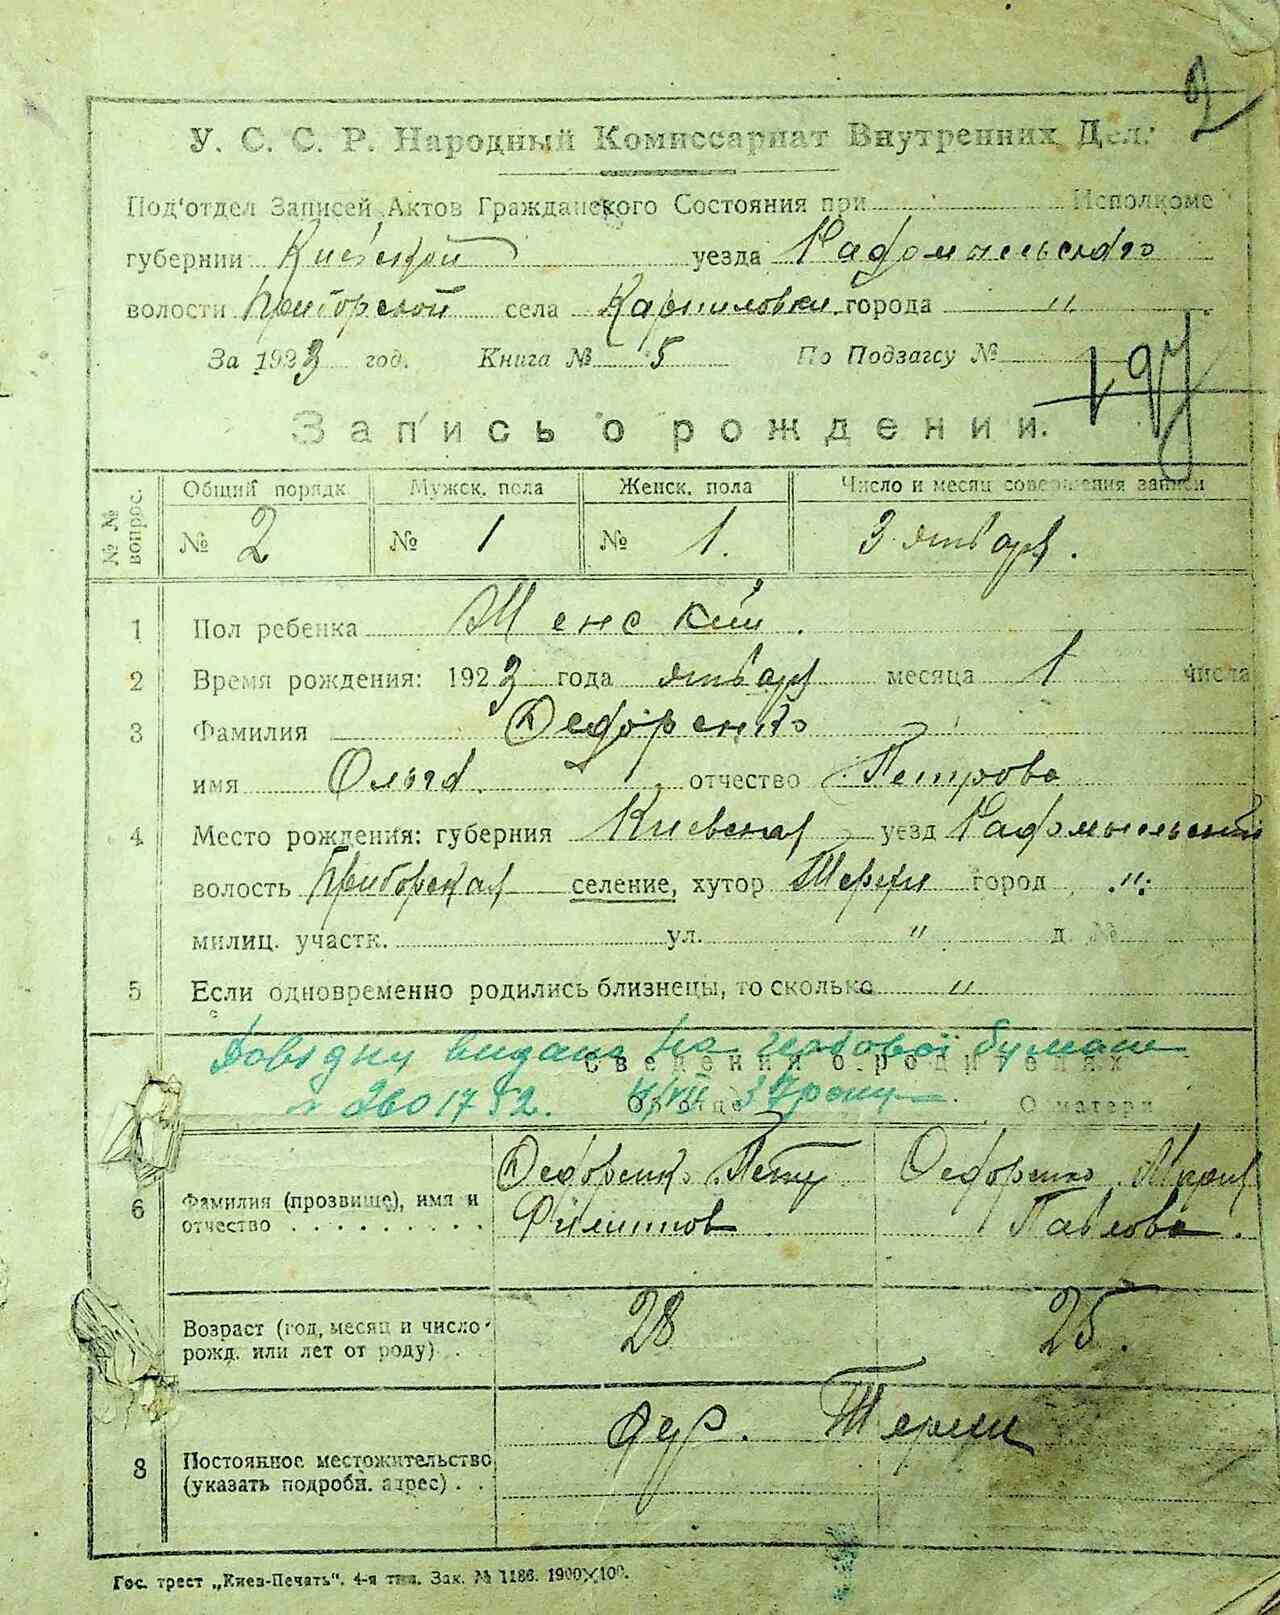 2
У. С. С. Р. Народный Комиссариат Внутренних Дел.
Под'отдел Записей Актов Гражданского Состояния при Исполкоме
губернии Киевской уезда Радомысльского
волости Приборской села Карпиловки города "
За 1923 год. Книга № 5 По Подзагсу №
197
Запись о рождении.
№ № вопрос. Общий порядк. Мужск. пола Женск. пола Число и месяц совершения записи
№ 2 № 1 № 1. 3 января.
1 Пол ребенка Женский.
2 Время рождения: 1923 года январ месяца 1 числа
3 Фамилия Федоренко
имя Ольга. отчество Петрова
4 Место рождения: губерния Киевская уезд Радомысльский
волость Приборская селение, хутор город "
милиц. участк. ул. " д. №
5 Если одновременно родились близнецы, то сколько "
Довідку видано на гербової бумаге
Сведения о родителях
№ 260 1752. 4/VII 37 року
Об отце О матери
6 Фамилия (прозвище), имя и Федоренко Петр Федоренко Мария
отчество Филиппов Павлова.
Возраст (год, месяц и число 28 25.
рожд. или лет от роду)
дер.
8 Постоянное местожительство
(указать подробн. адрес)
Гос. трест „Киев-Печать". 4-я тип. Зак. № 1186. 1900×100.